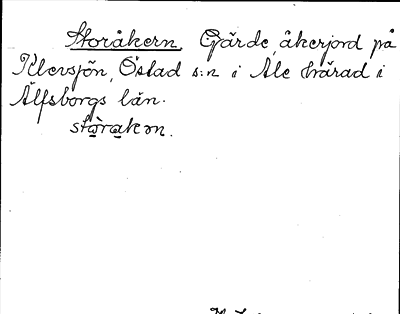 Storåkern. Gärde, åkerjord på
Klevsjön, Östad s:n i Ale härad i
Älfsborgs län.